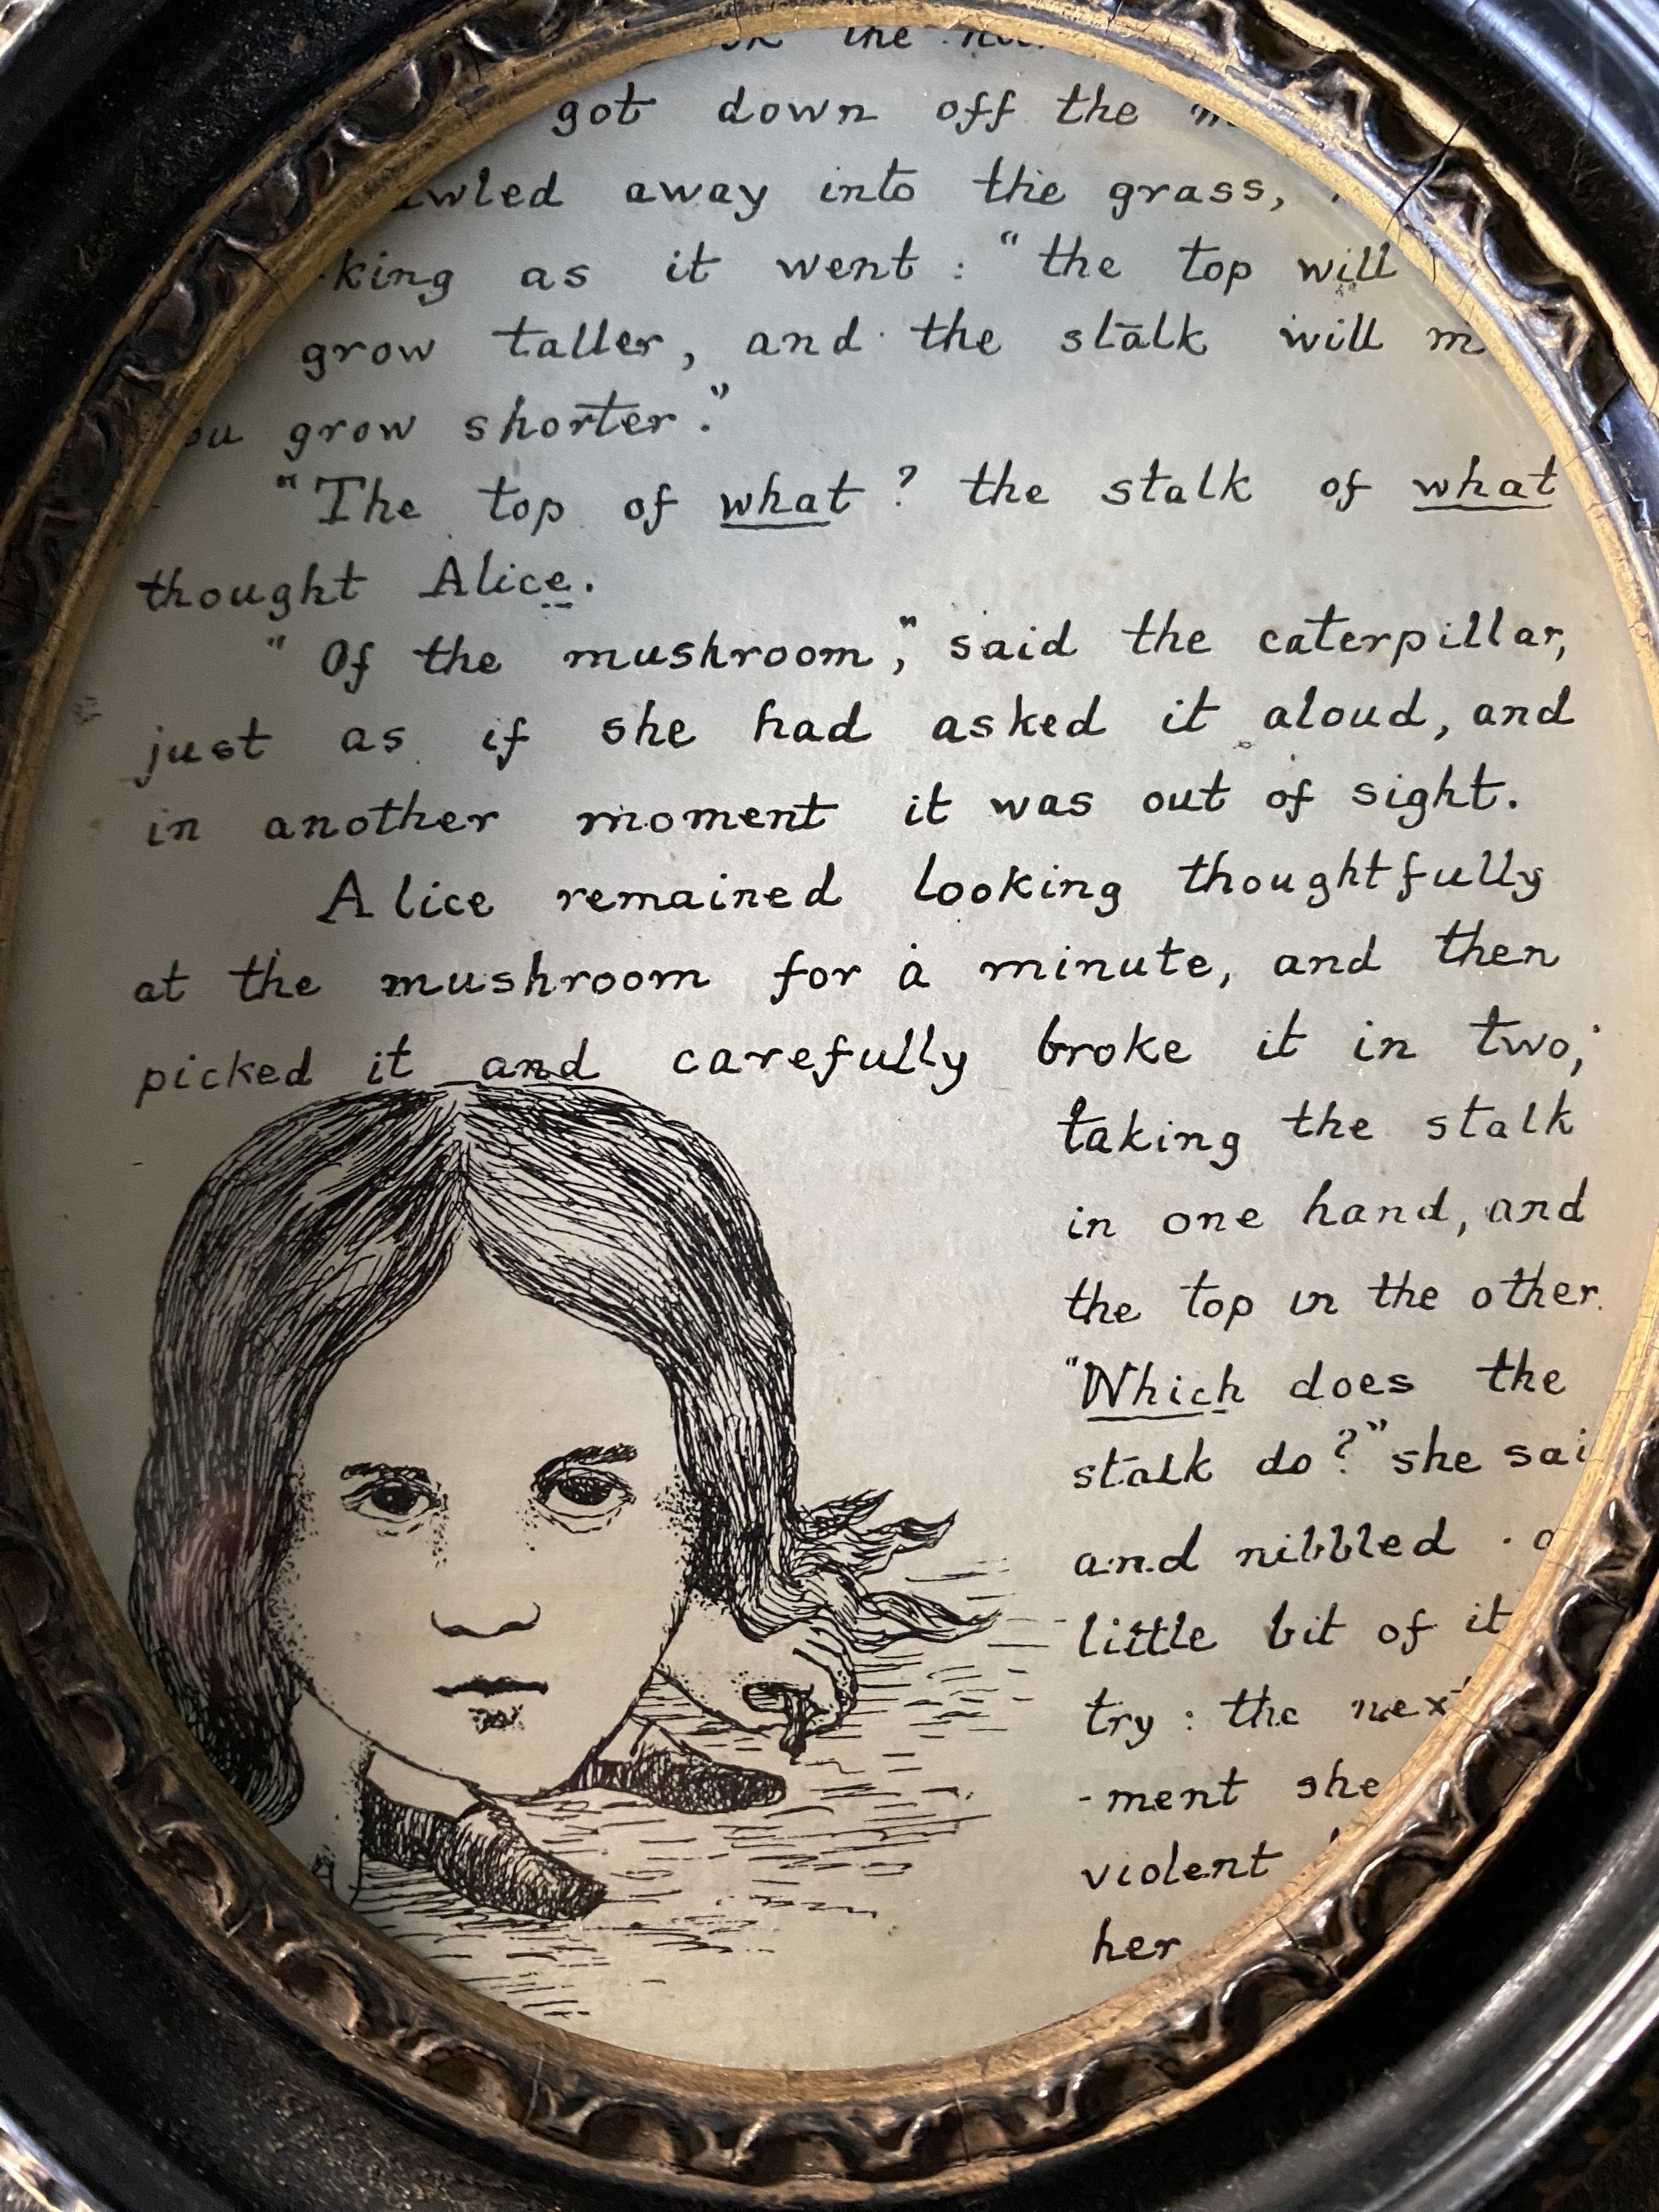 the
got down off the
away into the grass,
as it went : "the top will
grow taller, and the stalk will
grow shorter."
"The top of what ? the stalk of what
thought Alice.
"Of the mushroom," said the caterpillar,
just as if she had asked it aloud, and
in another moment it was out of sight.
Alice remained looking thoughtfully
at the mushroom for a minute, and then
picked it and carefully broke it in two,
taking the stalk
in one hand, and
the top in the other.
"Which does the
stalk do?" she sai
and nibbled a
little bit of it
try : the next
-ment she
violent
her